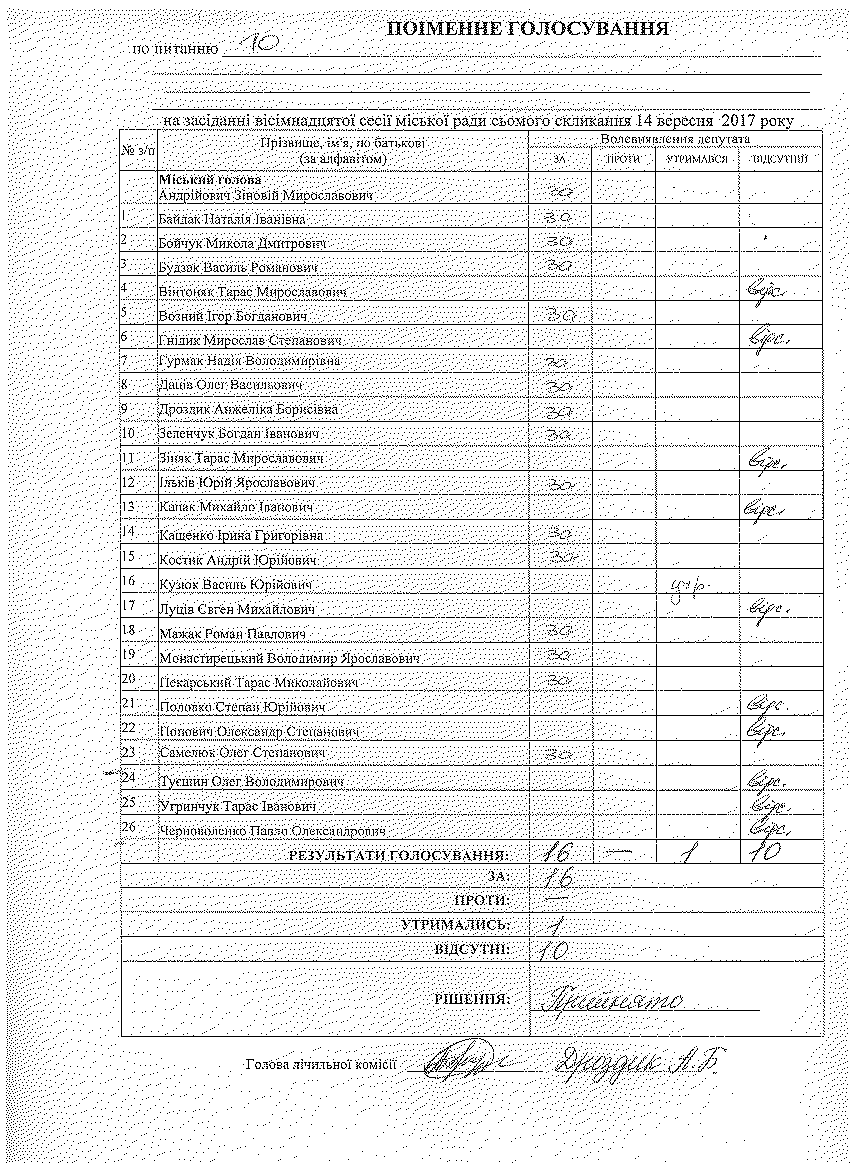 ПОІМЕННЕ ГОЛОСУВАННЯ
по питанню 10
на засіданні вісімнадцятої сесії міської ради сьомого скликання 14 вересня 2017 року
№ з/п Прізвище, ім'я, по батькові (за алфавітом) Волевиявлення депутата
ЗА ПРОТИ УТРИМАВСЯ ВІДСУТНІЙ
Міський голова
Андрійович Зіновій Мирославович за
1 Байдак Наталія Іванівна за
2 Бойчук Микола Дмитрович за
3 Будзак Василь Романович за
4 Вінтоняк Тарас Мирославович відс.
5 Возний Ігор Богданович за
6 Гнідик Мирослав Степанович відс.
7 Гурмак Надія Володимирівна за
8 Даців Олег Васильович за
9 Дроздик Анжеліка Борисівна за
10 Зеленчук Богдан Іванович за
11 Зіняк Тарас Мирославович відс.
12 Ільків Юрій Ярославович за
13 Капак Михайло Іванович відс.
14 Кащенко Ірина Григорівна за
15 Костик Андрій Юрійович за
16 Кузюк Василь Юрійович утр.
17 Луців Євген Михайлович відс.
18 Мажак Роман Павлович за
19 Монастирецький Володимир Ярославович за
20 Пекарський Тарас Миколайович за
21 Половко Степан Юрійович відс.
22 Попович Олександр Степанович відс.
23 Самелюк Олег Степанович за
24 Туєшин Олег Володимирович відс.
25 Угринчук Тарас Іванович відс.
26 Черноволенко Павло Олександрович відс.
РЕЗУЛЬТАТИ ГОЛОСУВАННЯ: 16 — 1 10
ЗА: 16
ПРОТИ: —
УТРИМАЛИСЬ: 1
ВІДСУТНІ: 10
РІШЕННЯ: Прийнято
Голова лічильної комісії Дроздик А.Б.